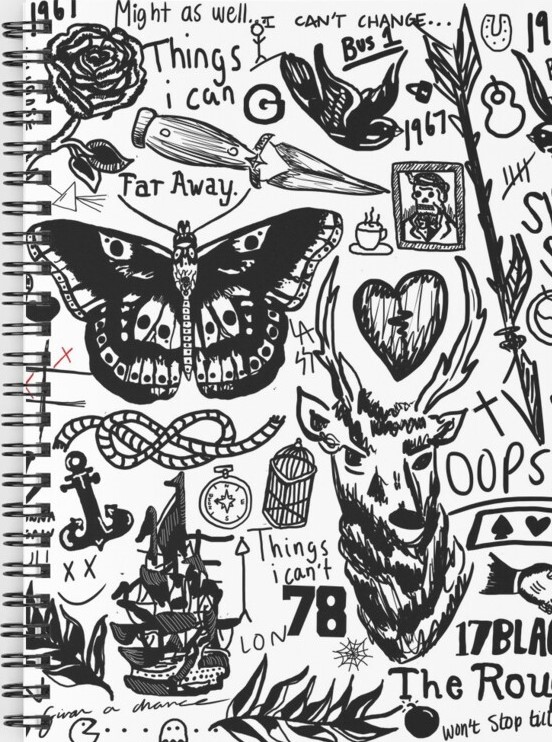 1961
Might as well...
II CAN'T CHANGE...
Bus 1
Things
i can
G
1967
Far Away.
OOPS
Things
i can't
78
LON
17BLA
The Rou
Given a chance
Won't Stop till